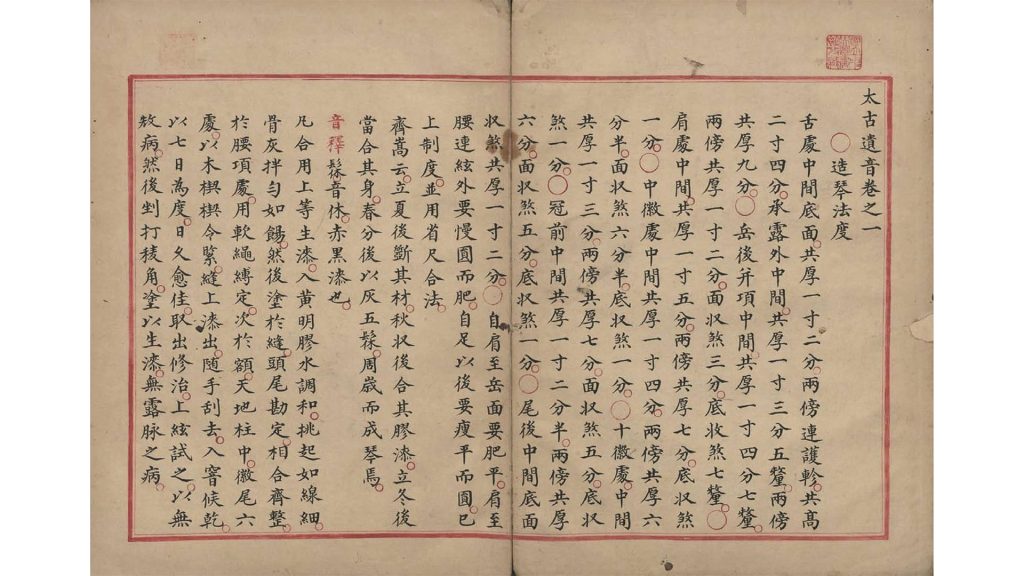 太古遺音卷之一
○造琴法度
舌處中間底面共厚一寸二分兩傍連護軫共高
二寸四分承露外中間共厚一寸三分五釐兩傍
共厚九分○岳後并項中間共厚一寸四分七釐
兩傍共厚一寸二分面収煞三分底收煞七釐○
肩處中間共厚一寸五分兩傍共厚七分底収煞
一分○中徽處中間共厚一寸四分兩傍共厚六
分半面収煞六分半底収煞一分○十徽處中間
共厚一寸三分兩傍共厚七分面収煞五分底収
煞一分○冠前中間共厚一寸二分半兩傍共厚
六分面収煞五分底収煞一分○尾後中間底面
収煞共厚一寸二分○自肩至岳面要肥平肩至
腰連絃外要慢圓而肥自足以後要瘦平而圓已
上制度並用省尺合法
齊嵩云立夏後斷其材秋収後合其膠漆立冬後
當合其身春分後以灰五髹周歲而成琴焉
音釋髹音休赤黑漆也
凡合用上等生漆入黃明膠水調和挑起如線細
骨灰拌勻如餳然後塗於縫頭尾勘定相合齊整
於腰項處用軟繩縛定次於額天地柱中徽尾六
處以木楔楔令緊縫上漆出隨手刮去入窨候乾
以七日為度日久愈佳取出修治上絃試之以無
敓病然後剉打稜角塗以生漆無露脉之病